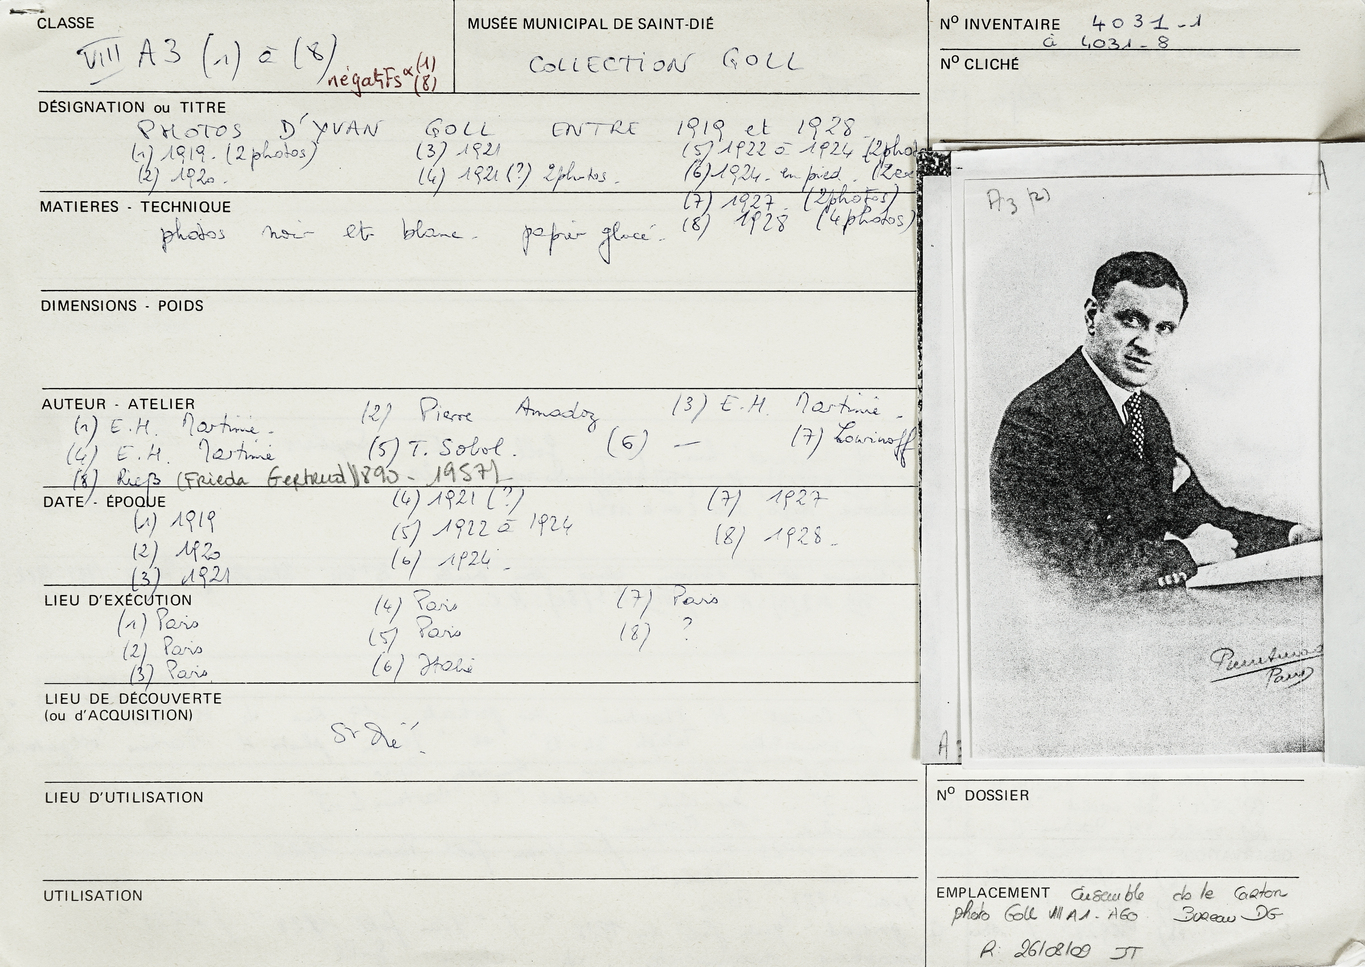 CLASSE
VIII A3 (1) à (8)
négatifs (1) (8)
MUSÉE MUNICIPAL DE SAINT-DIÉ
COLLECTION GOLL
Nº INVENTAIRE 4031-1
à 4031-8
Nº CLICHÉ
DÉSIGNATION ou TITRE
PHOTOS D'YVAN GOLL ENTRE 1919 et 1928
(1) 1919. (2 photos) (3) 1921 (5) 1922 à 1924 (2 phot
(2) 1920. (4) 1921 (?) 2 photos. (6) 1924. en pied.
(7) 1927. (2 photos)
(8) 1928 (4 photos)
MATIERES - TECHNIQUE
photos noir et blanc. papier glacé.
DIMENSIONS - POIDS
AUTEUR - ATELIER
(1) E.H. Martinie. (2) Pierre Amadoz (3) E.H. Martinie.
(4) E.H. Martinié (5) T. Sobol. (6) — (7) Lowinoff
(8) Rieß (Frieda Gertrud) 1890 - 1957)
DATE - ÉPOQUE
(1) 1919 (4) 1921 (?) (7) 1927
(2) 1920 (5) 1922 à 1924 (8) 1928.
(3) 1921 (6) 1924.
LIEU D'EXÉCUTION
(1) Paris (4) Paris (7) Paris
(2) Paris (5) Paris (8) ?
(3) Paris (6) Italie
LIEU DE DÉCOUVERTE
(ou d'ACQUISITION)
St Dié.
LIEU D'UTILISATION
UTILISATION
A3 (2)
A
Paris
A
Nº DOSSIER
EMPLACEMENT Ensemble ds le Carton
photo Goll VIII A1 - A60 Bureau DG
R. 26/08/09 JT